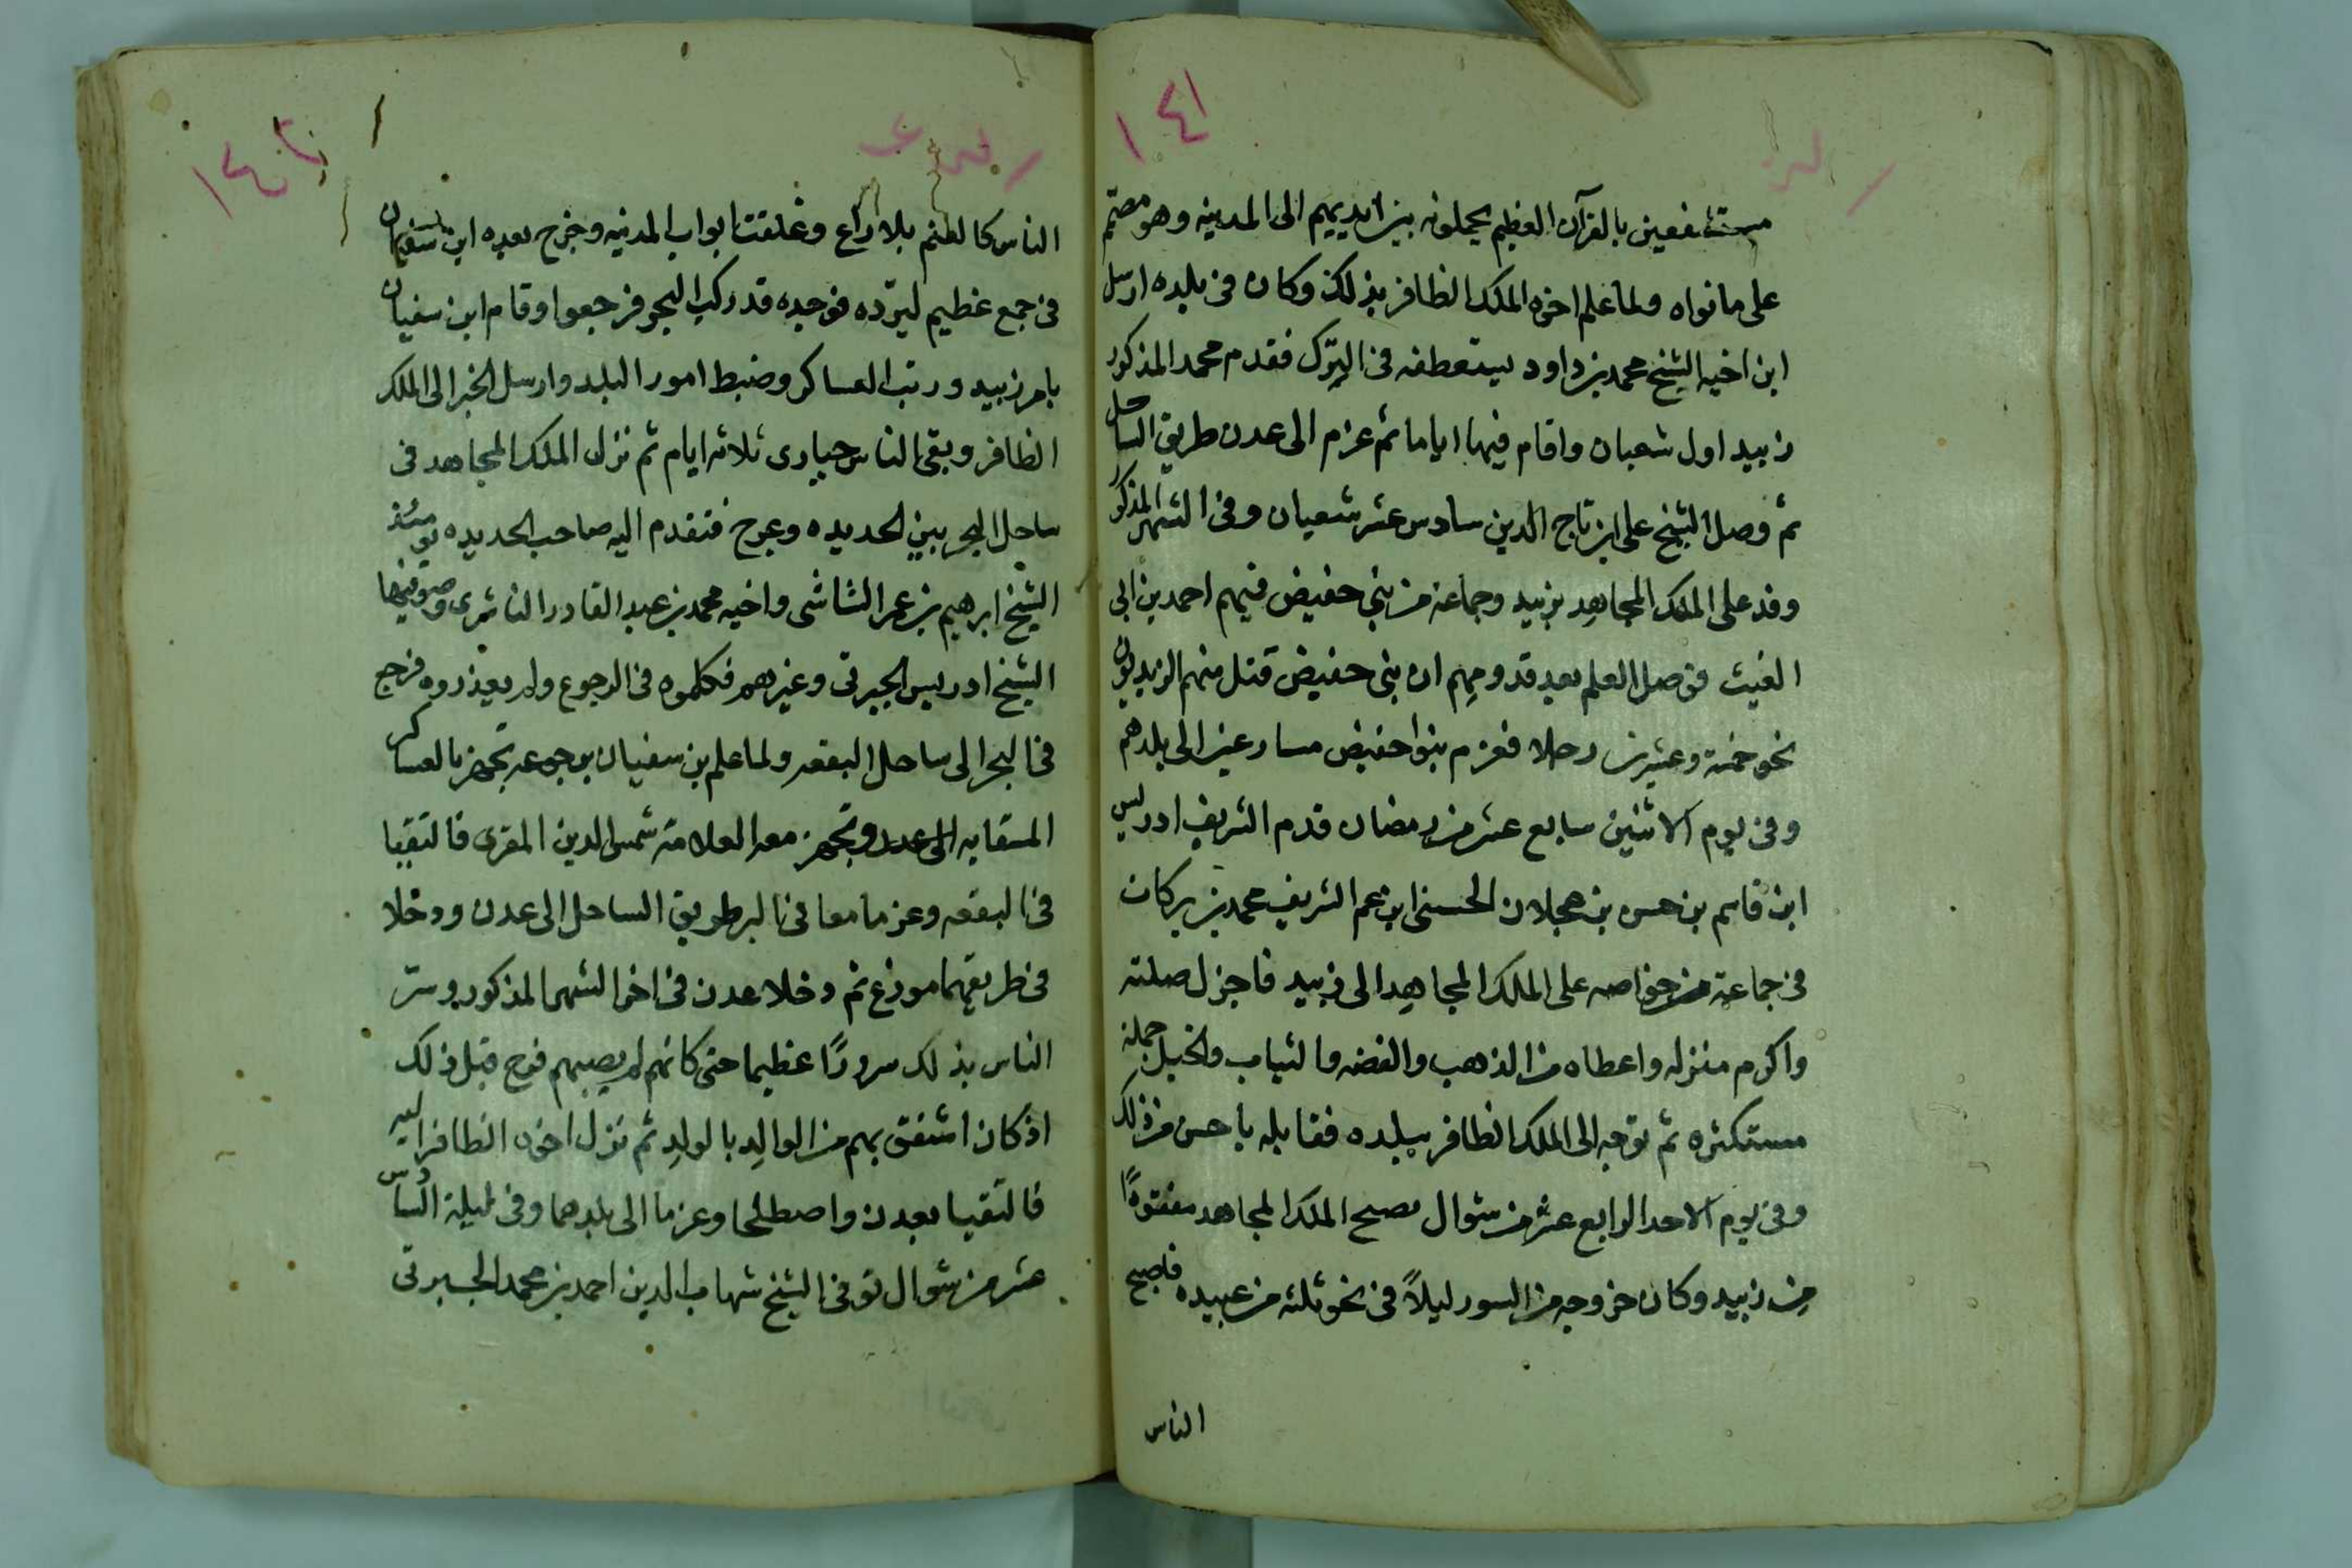 ١٤١
مستشفعين بالقرآن العظيم يحملونه بين ايديهم الى المدينه وهو مصمم
على مانواه ولما علم اخوه الملك الظافر بذلك وكان فى بلده ارسل
ابن اخيه الشيخ محمد بن داود يستعطفه فى الترك فقدم محمد المذكور
زبيد اول شعبان واقام فيها اياما ثم عزم الى عدن طريق الساحل
ثم وصل الشيخ على ابن تاج الدين سادس عشر شعبان وفى الشهر المذكور
وفد على الملك المجاهد بزبيد وجماعة من بنى حفيض فيهم احمد بن ابى
الغيث فوصل العلم بعد قدومهم ان بنى حفيض قتل منهم الزيديون
نحو خمسة وعشرين رجلا فعزم بنوا حفيض مسارعين الى بلدهم
وفى يوم الاثنين سابع عشر من رمضان قدم الشريف ادريس
ابن قاسم بن حسن بن عجلان الحسنى ابن عم الشريف محمد بن بركات
فى جماعة من خواصه على الملك المجاهد الى زبيد فاجزل صلته
واكرم منزله واعطاه من الذهب والفضه والثياب والخيل جملة
مستكثره ثم توجه الى الملك الظافر ببلده فقابله باحسن من ذلك
وفى يوم الاحد الرابع عشر من شوال اصبح الملك المجاهد مفقودًا
من زبيد وكان خروجه من السور ليلاً فى نحو ثلثه من عبيده فاصبح
الناس
١٤٢
الناس كالغنم بلا راع وغلقت ابواب المدينه وخرج بعده ابن سفيان
فى جمع عظيم ليرّده فوجده قد ركب البحر فرجعوا وقام ابن سفيان
بامر زبيد ورتب العساكر وضبط امور البلد وارسل الخبر الى الملك
الظافر وبقى الناس حيارى ثلاثه ايام ثم نزل الملك المجاهد فى
ساحل البحر بين الحديده وعرج فتقدم اليه صاحب الحديده يومئذ
الشيخ ابرهيم بن عمر الشاشى واخيه محمد بن عبد القادر الناشرى وصوفيها
الشيخ ادريس الجبرتى وغيرهم فكلموه فى الرجوع ولم يعذروه فرجع
فى البحر الى ساحل البقعه ولما علم بن سفيان برجوعه تجهز بالعساكر
المتقابه الى عدن وتجهز معه العلامة شمس الدين المقرى فالتقيا
فى البقعه وعزما معا فى البر طريق الساحل الى عدن ودخلا
فى طريقهما موزع ثم دخلا عدن فى اخر الشهر المذكور وسرّ
الناس بذلك سرورًا عظيما حتى كانهم لم يصبهم فرح قبل ذلك
اذ كان اشفق بهم من الوالد بالولد ثم نزل اخوه الظافر اليه
فالتقيا بعدن واصطلحا وعزما الى بلدهما وفى ليلة السادس
عشر من شوال توفى الشيخ شهاب الدين احمد بن محمد الجبرتى